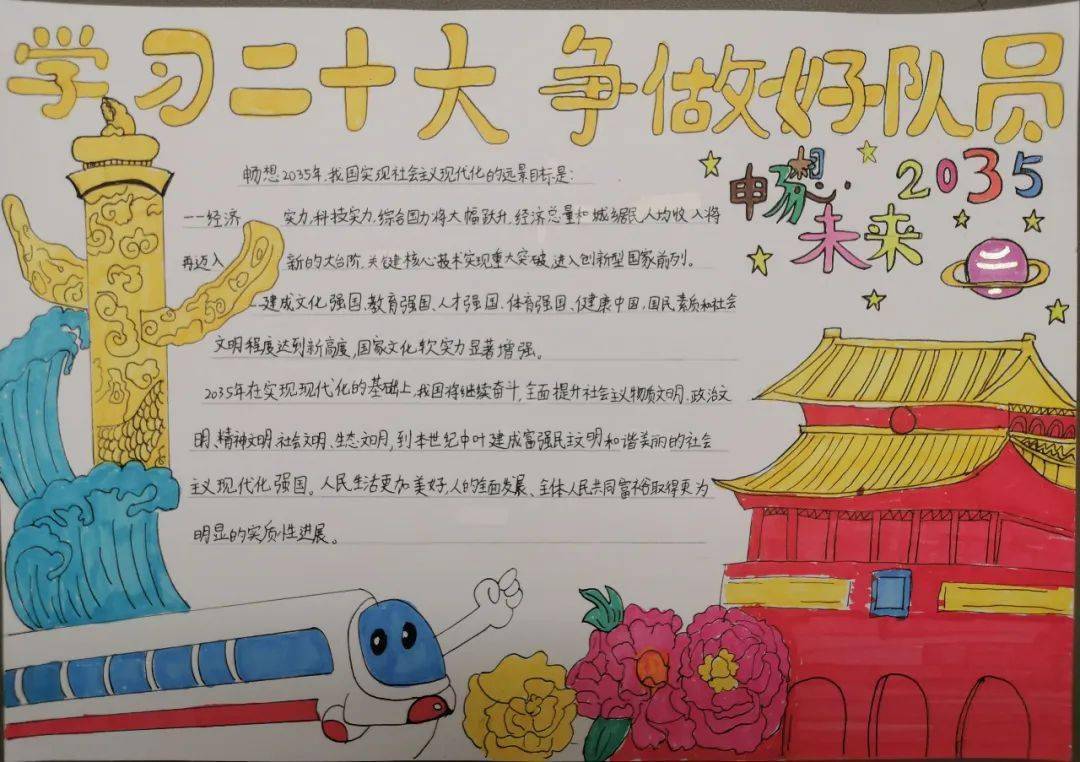 学习二十大 争做好队员
畅想 2035
未来
畅想2035年,我国实现社会主义现代化的远景目标是:
--经济 实力,科技实力,综合国力将大幅跃升,经济总量和城乡居民人均收入将
再迈入 新的大台阶,关键核心技术实现重大突破,进入创新型国家前列。
--建成文化强国、教育强国、人才强国、体育强国、健康中国,国民素质和社会
文明程度达到新高度,国家文化软实力显著增强。
2035年在实现现代化的基础上,我国将继续奋斗,全面提升社会主义物质文明、政治文
明、精神文明、社会文明、生态文明,到本世纪中叶建成富强民主文明和谐美丽的社会
主义现代化强国。人民生活更加美好,人的全面发展、全体人民共同富裕取得更为
明显的实质性进展。